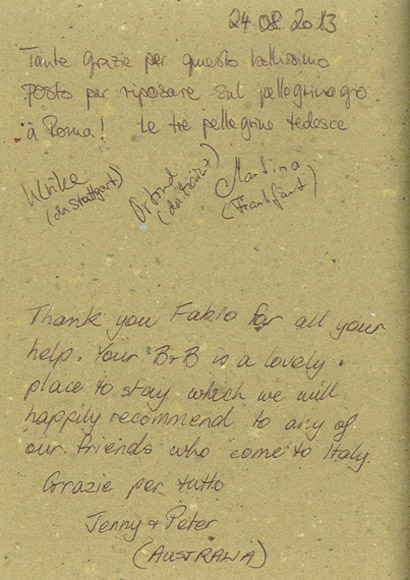 24.08.2013
Tante Grazie per questo bellissimo
posto per riposare sul pellegrinagro
a Roma! Le tre pellegrine tedesce
Ulrike
(da Stuttgart)
(da
Martina
(Frankfurt)
Thank you Fabio for all your
help. Your B+B is a lovely
place to stay which we will
happily recommend to any of
our friends who come to Italy.
Grazie per tutto
Jenny + Peter
(AUSTRALIA)